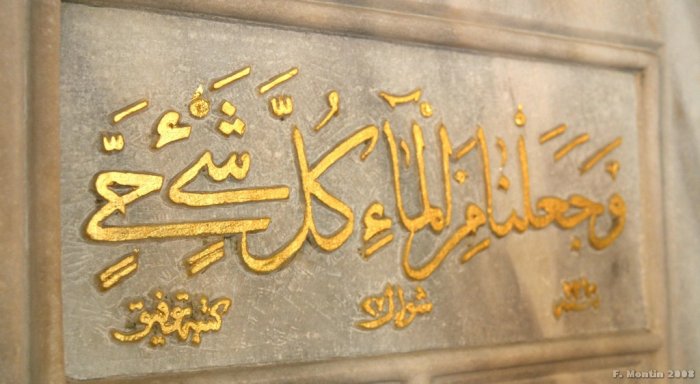 وَجَعَلْنَا مِنَ الْمَآءِ كُلَّ شَيْءٍ حَيٍّ
شوال
كتبه توفيق
F. Montin 2008